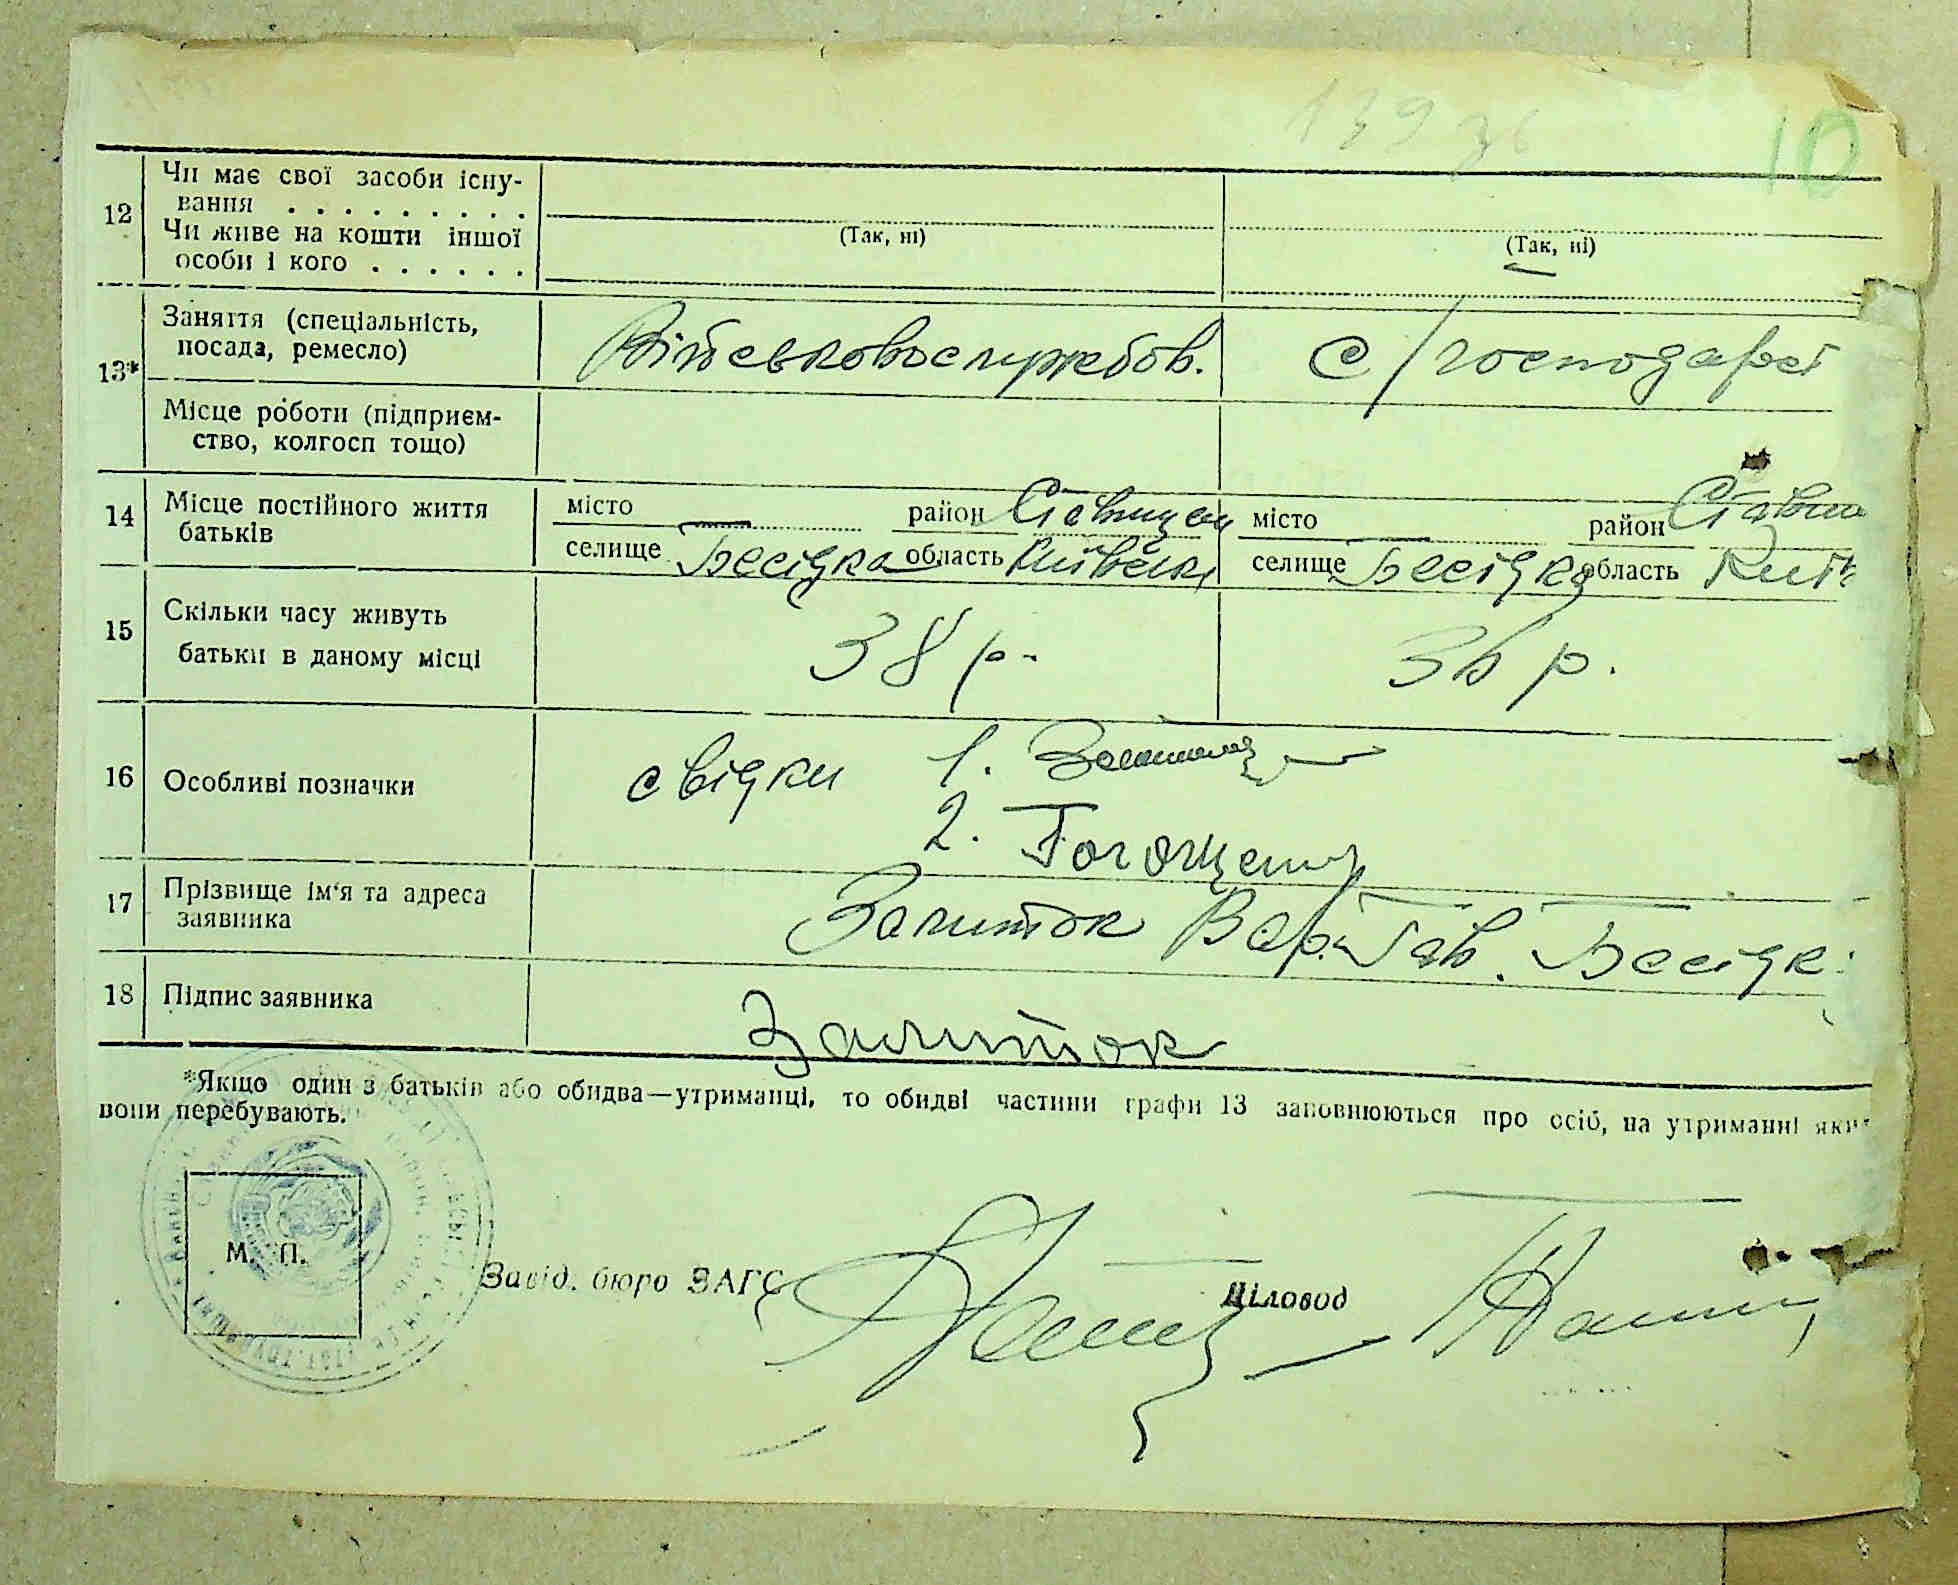 10
12 Чи має свої засоби існу-
вання . . . . . . . . .
Чи живе на кошти іншої
особи і кого . . . . . .
(Так, ні) (Так, ні)
13* Заняття (спеціальність,
посада, ремесло) Військовослужбов. с/господарст
Місце роботи (підприєм-
ство, колгосп тощо)
14 Місце постійного життя
батьків
місто — район Ставищен місто — район Стави
селище Бесідка область Київськ селище Бесідка область Київ
15 Скільки часу живуть
батьки в даному місці 38 р. 36 р.
16 Особливі позначки свідки 1.
2.
17 Прізвище ім'я та адреса
заявника Залиток Вар. Гав. Бесідк
18 Підпис заявника Залиток
*Якщо один з батьків або обидва—утриманці, то обидві частини графи 13 заповнюються про осіб, на утриманні яких
вони перебувають.
М. П.
Завід. бюро ЗАГС Діловод